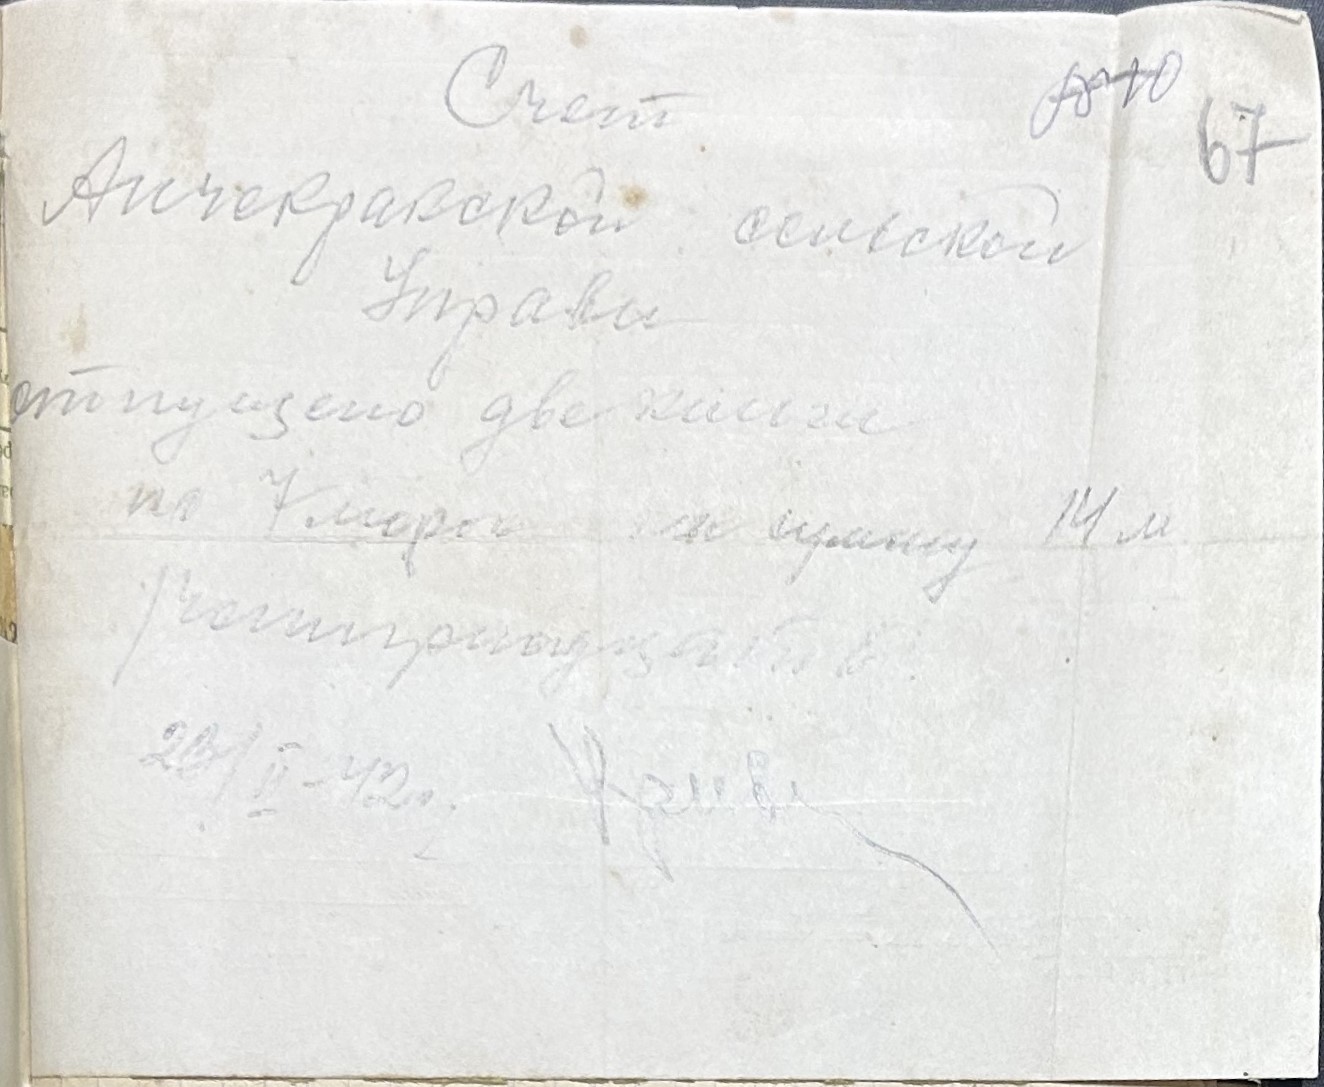 Счет
67
Анчекракской сельской
Управы
отпущено две книги
по 7 марок на сумму 14 м
/четырнадцать
20/II-42г.